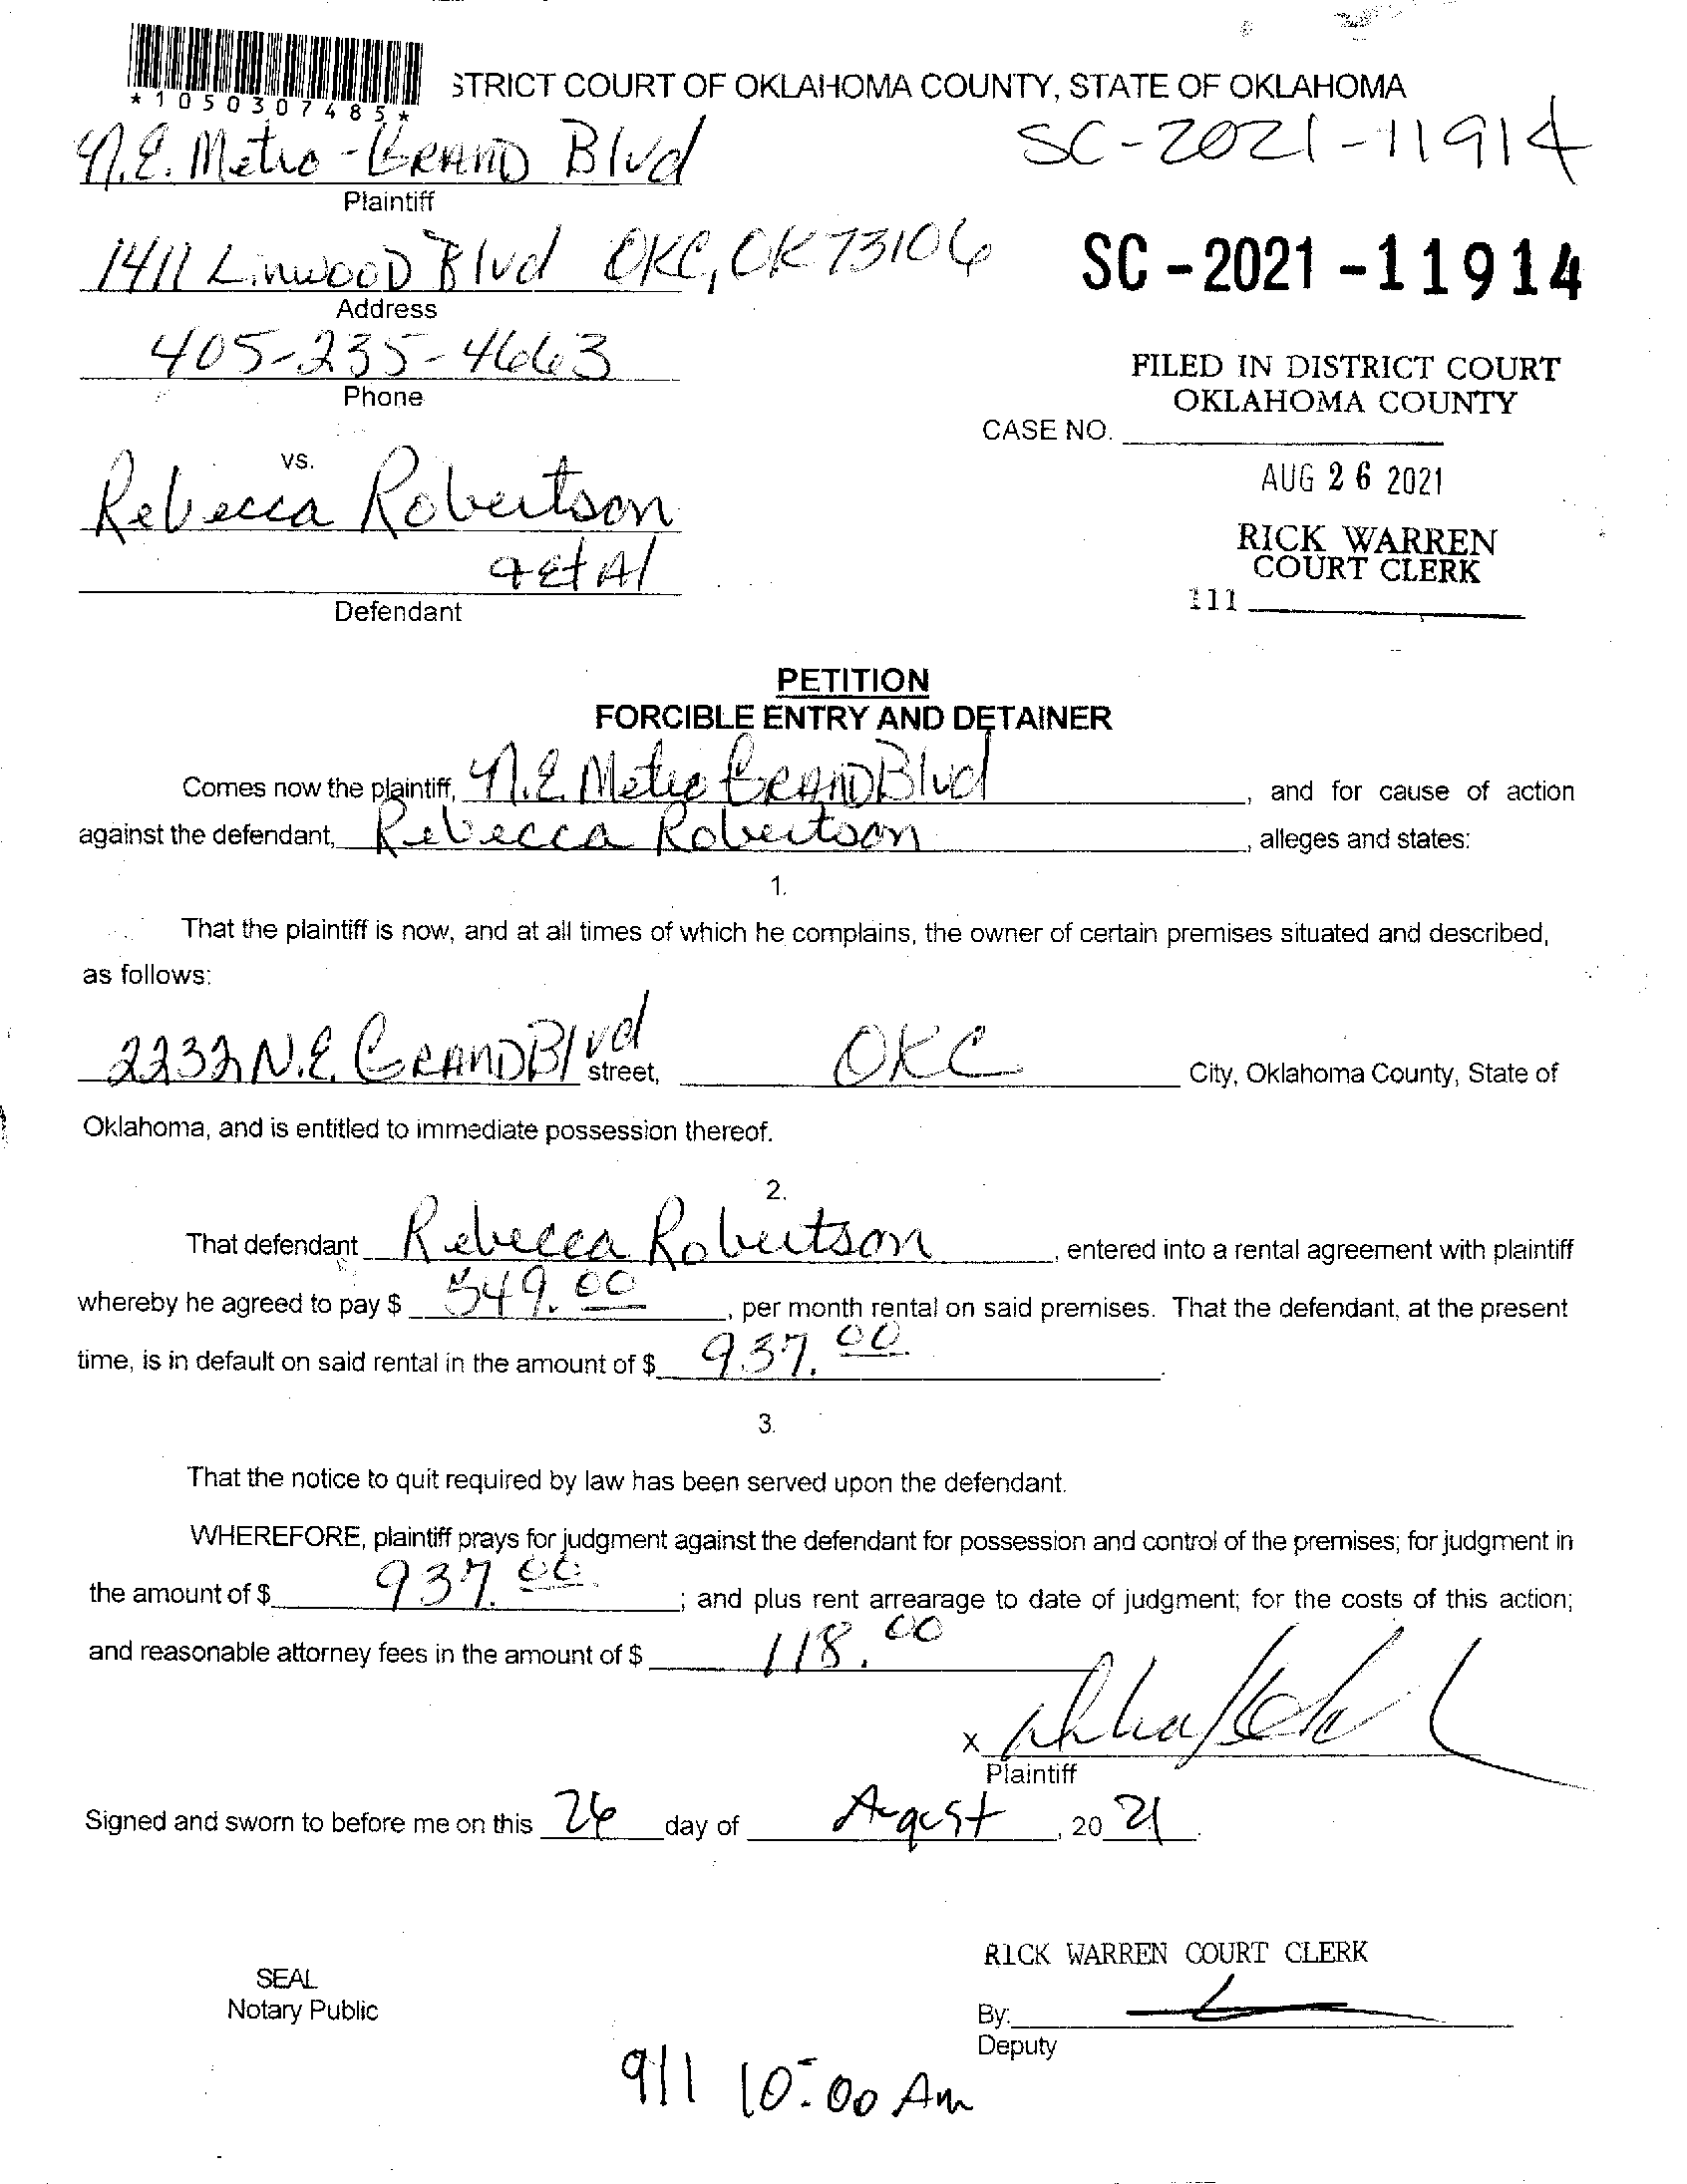 *1050307485*
STRICT COURT OF OKLAHOMA COUNTY, STATE OF OKLAHOMA
N.E. Metro - GRAND Blvd
SC-2021-11914
Plaintiff
1411 LinwooD Blvd OKC, OK 73106
SC-2021-11914
Address
405-235-4663
Phone
FILED IN DISTRICT COURT
OKLAHOMA COUNTY
CASE NO.
vs.
AUG 26 2021
Rebecca Robertson
RICK WARREN
COURT CLERK
& Et Al
111
Defendant
PETITION
FORCIBLE ENTRY AND DETAINER
Comes now the plaintiff, N.E. Metro GRAND Blvd, and for cause of action
against the defendant, Rebecca Robertson, alleges and states:
1.
That the plaintiff is now, and at all times of which he complains, the owner of certain premises situated and described,
as follows:
2232 N.E. GRAND Blvd street, OKC City, Oklahoma County, State of
Oklahoma, and is entitled to immediate possession thereof.
2.
That defendant Rebecca Robertson, entered into a rental agreement with plaintiff
whereby he agreed to pay $ 549.00, per month rental on said premises. That the defendant, at the present
time, is in default on said rental in the amount of $ 937.00.
3.
That the notice to quit required by law has been served upon the defendant.
WHEREFORE, plaintiff prays for judgment against the defendant for possession and control of the premises; for judgment in
the amount of $ 937.00; and plus rent arrearage to date of judgment; for the costs of this action;
and reasonable attorney fees in the amount of $ 118.00
X
Plaintiff
Signed and sworn to before me on this 26 day of Agust, 20 21.
RICK WARREN COURT CLERK
SEAL
Notary Public
By:
Deputy
9/1 10:00 Am